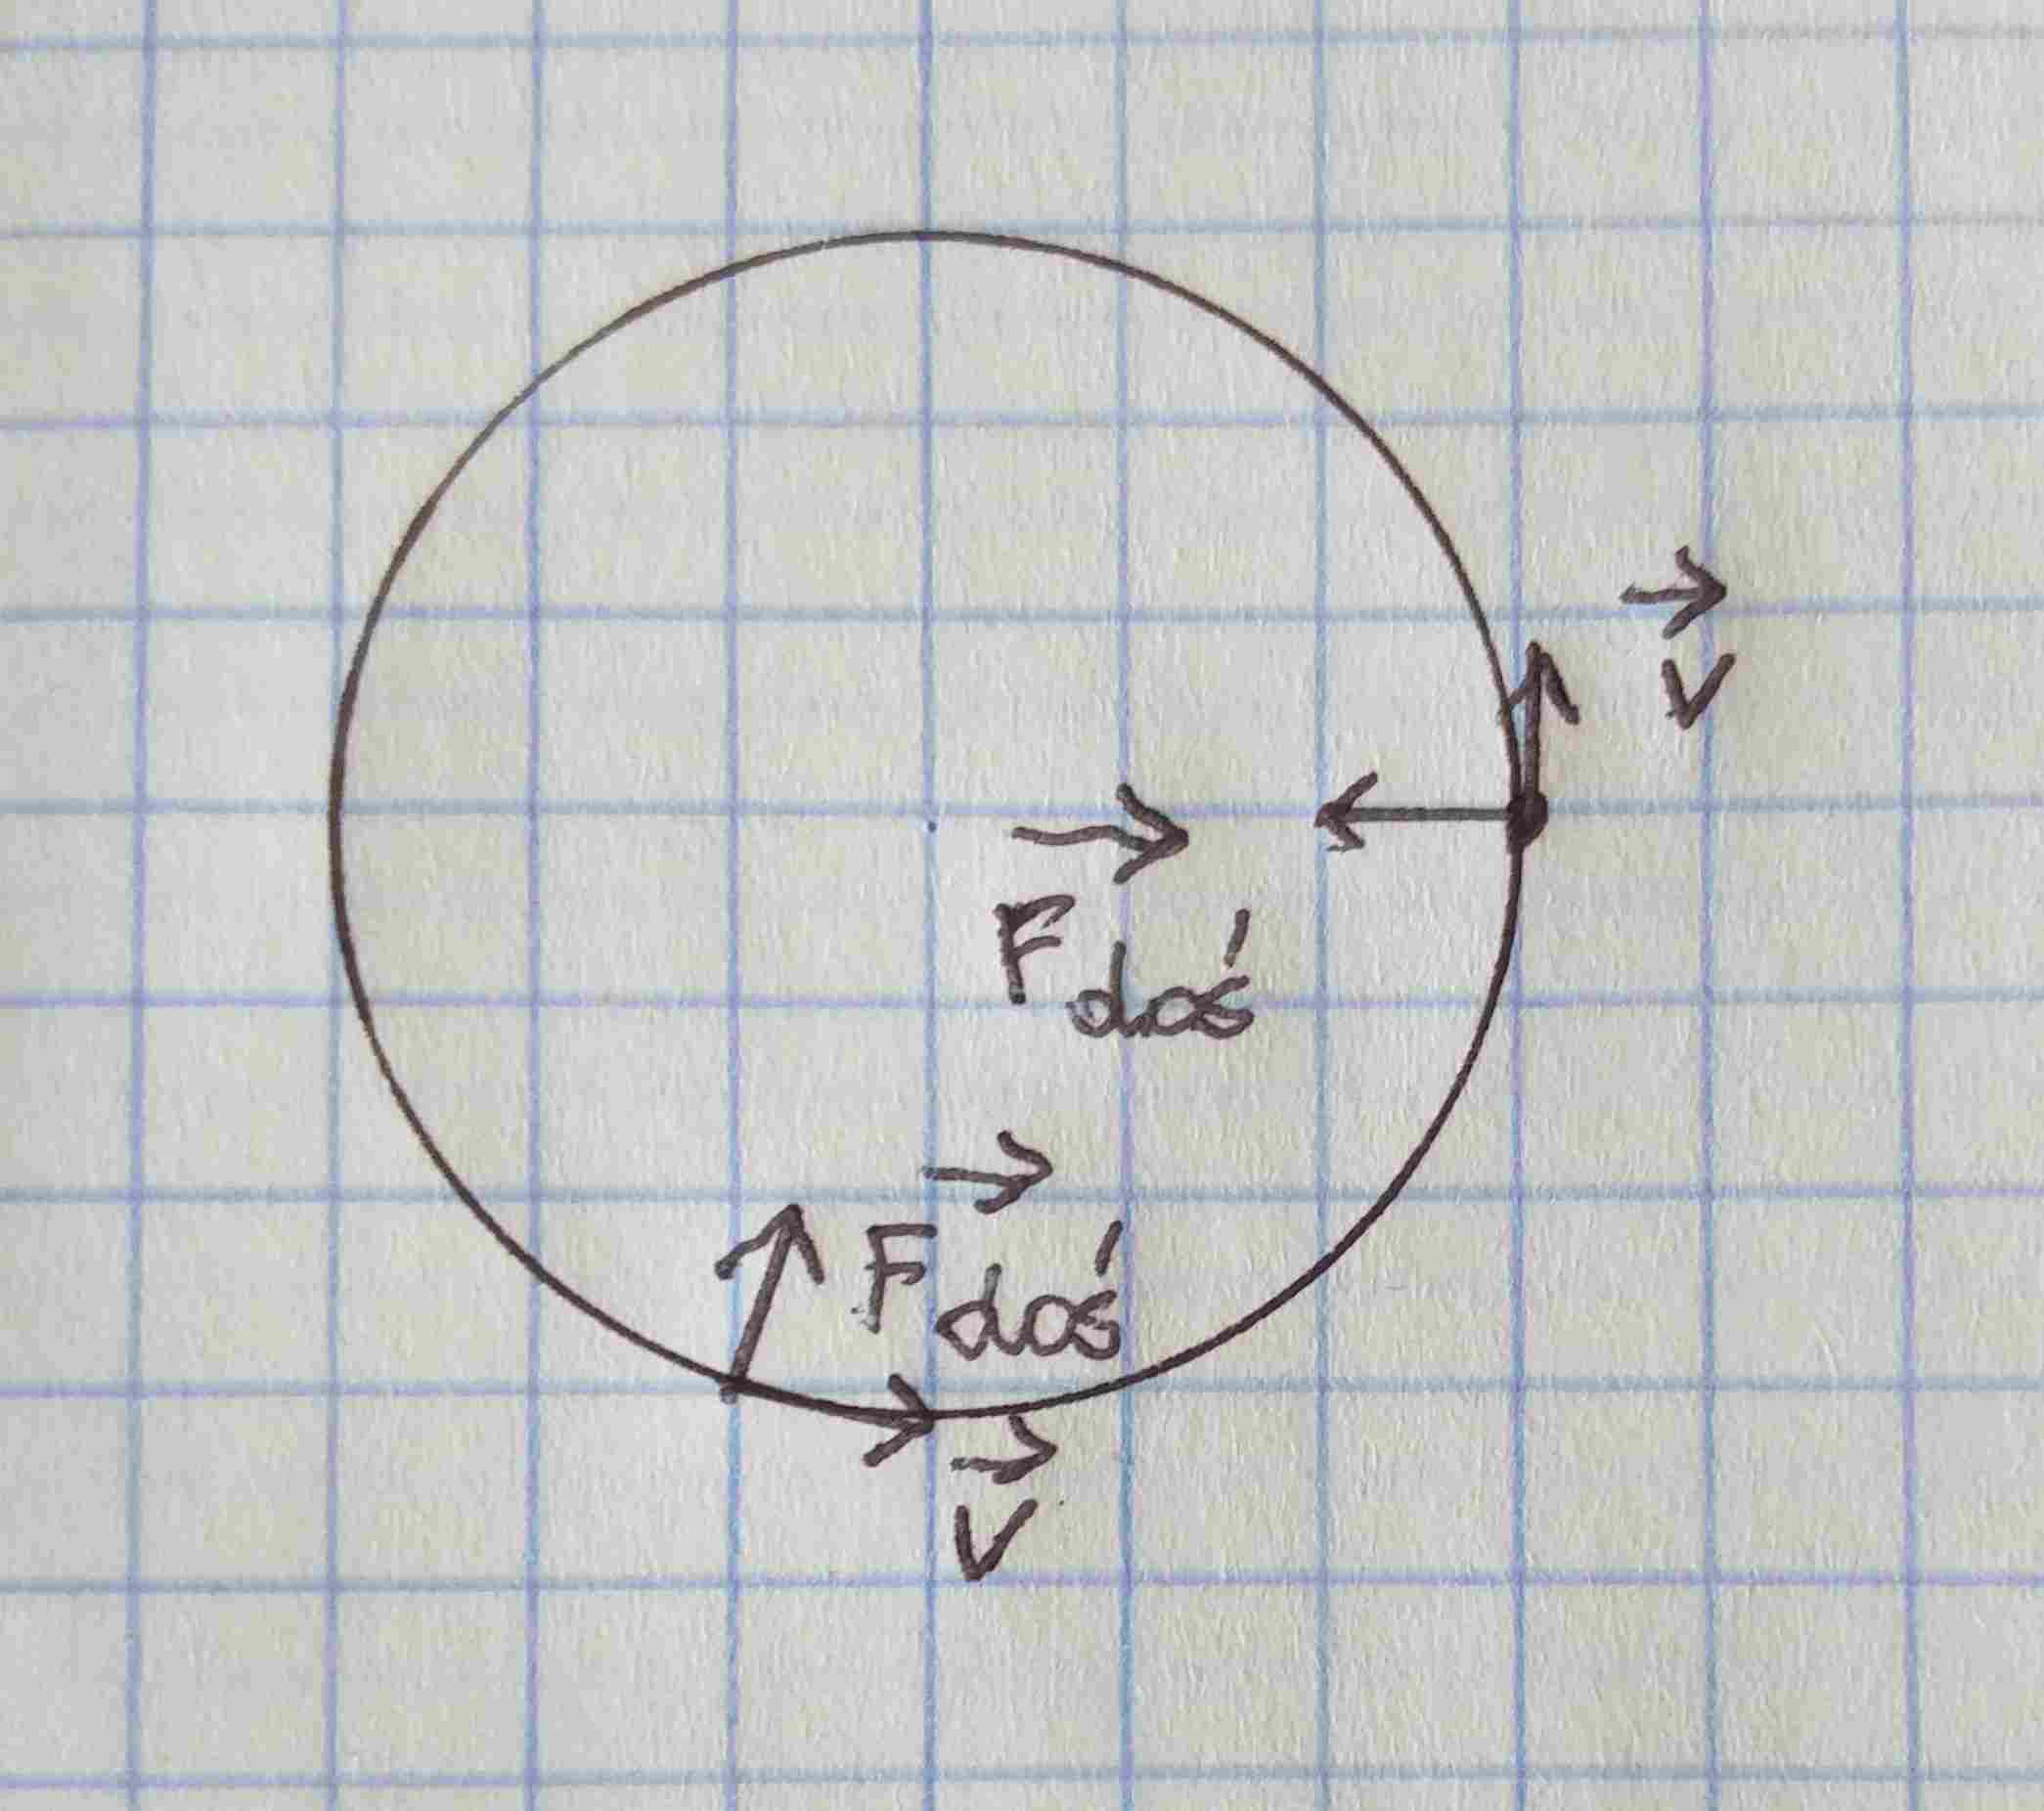 v⃗
F⃗ doś
F⃗ doś
v⃗